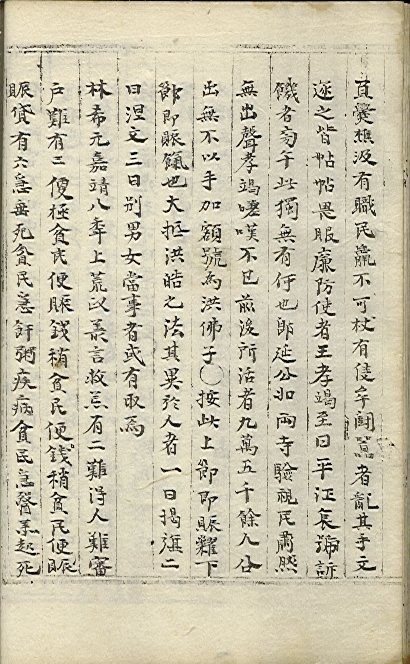 負爨樵汲有職民羸不可杖有侵牟鬪嚚者亂其手文
逐之皆帖帖畏服廉防使者王孝竭至曰平江哀號訴
饑者旁午此獨無有何也即延公如兩寺驗視民肅然
無出聲孝竭嗟嘆不已前後所活者九萬五千餘人公
出無不以手加額號為洪佛子○按此上節即賑糶下
節即賑飢也大抵洪皓之法其異於人者一曰揭旗二
曰涅文三曰別男女當事者或有取焉
林希元嘉靖八年上荒政叢言救荒有二難得人難審
戶難有二便極貧民便賑錢稍貧民便錢稍貧民便賑
賑貸有六急垂死貧民急飦粥疾病貧民急醫藥起死